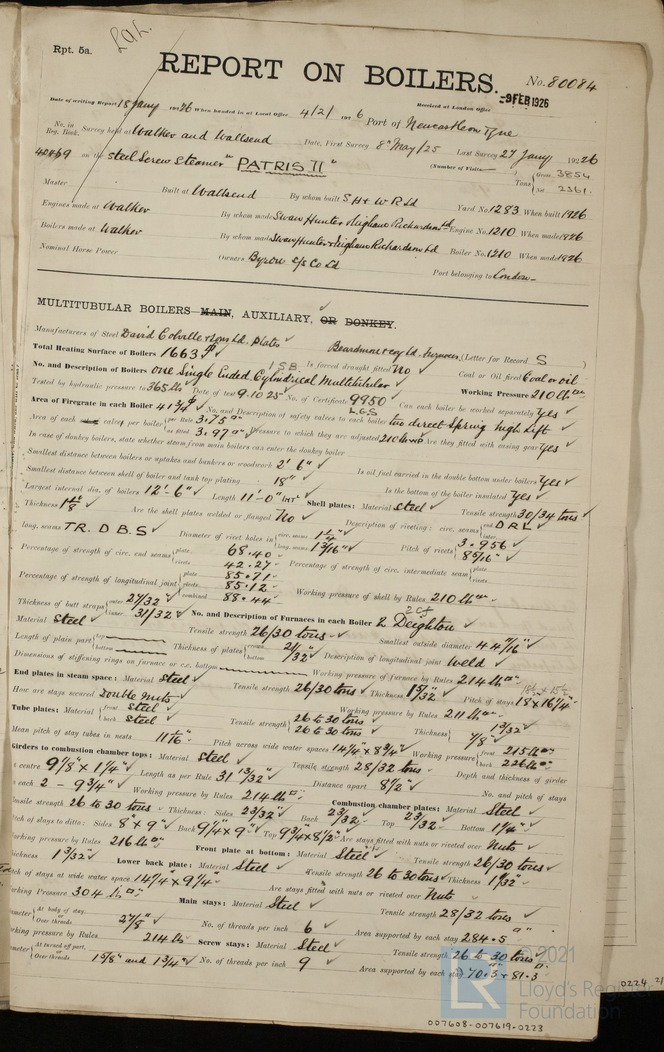 Rpt. 5a.
REPORT ON BOILERS.
No. 80084
-9 FEB 1926
Date of writing Report 18 Jany 1926 When handed in at Local Office 4/2/1926 Port of Newcastle on Tyne
Received at London Office
No. in Reg. Book. Survey held at Walker and Wallsend Date, First Survey 8th May/25 Last Survey 27 Jany 1926
40469 on the Steel Screw Steamer "PATRIS II" (Number of Visits Gross 3854
Tons Net 2361
Master Built at Wallsend By whom built S H & W R Ld Yard No. 1283 When built 1926
Engines made at Walker By whom made Swan Hunter & Wigham Richardson Ld Engine No. 1210 When made 1926
Boilers made at Walker By whom made Swan Hunter & Wigham Richardson Ld Boiler No. 1210 When made 1926
Nominal Horse Power Owners Byron S/S Co Ld Port belonging to London
MULTITUBULAR BOILERS MAIN, AUXILIARY, OR DONKEY.
Manufacturers of Steel David Colville & Sons Ld. Plates Beardmore & Coy Ld. Furnaces (Letter for Record S
Total Heating Surface of Boilers 1663 Is forced draught fitted No Coal or Oil fired Coal or oil
No. and Description of Boilers One Single Ended Cylindrical Multitubular 1 S.B. Working Pressure 210 lbs
Tested by hydraulic pressure to 365 lbs Date of test 9.10.25 No. of Certificate 9950 Can each boiler be worked separately Yes
Area of Firegrate in each Boiler 41 3/4 No. and Description of safety valves to each boiler two direct Spring High Lift
Area of each valve per boiler per Rule 3.75 as fitted 3.97 Pressure to which they are adjusted 210 lb WP Are they fitted with easing gear Yes
In case of donkey boilers, state whether steam from main boilers can enter the donkey boiler
Smallest distance between boilers or uptakes and bunkers or woodwork 2' 6" Is oil fuel carried in the double bottom under boilers Yes
Smallest distance between shell of boiler and tank top plating 18" Is the bottom of the boiler insulated Yes
Largest internal dia. of boilers 12'-6" Length 11'-0" INT Shell plates: Material Steel Tensile strength 30/34 tons
Thickness 1 1/8 Are the shell plates welded or flanged No Description of riveting: circ. seams end D R L inter.
long. seams TR. D B. S Diameter of rivet holes in circ. seams 1 1/4 long. seams 1 3/16" Pitch of rivets 3.956
8 5/16"
Percentage of strength of circ. end seams plate 68.40 rivets 42.27 Percentage of strength of circ. intermediate seam plate rivets
Percentage of strength of longitudinal joint plate 85.71 rivets 85.12 combined 88.44 Working pressure of shell by Rules 210 lbs
Thickness of butt straps outer 27/32 inner 31/32 No. and Description of Furnaces in each Boiler 2 Deighton
Material Steel Tensile strength 26/30 tons Smallest outside diameter 44 7/16"
Length of plain part top bottom Thickness of plates crown bottom 21/32" Description of longitudinal joint Weld
Dimensions of stiffening rings on furnace or c.c. bottom Working pressure of furnace by Rules 214 lbs
End plates in steam space: Material Steel Tensile strength 26/30 tons Thickness 1 5/32" Pitch of stays 18 x 16 1/4"
How are stays secured Double nuts Working pressure by Rules 211 lbs
Tube plates: Material front Steel back Steel Tensile strength 26 to 30 tons 26 to 30 tons Thickness 1 3/32 7/8"
Mean pitch of stay tubes in nests 11 1/16" Pitch across wide water spaces 14 1/4 x 8 3/4" Working pressure front 215 lbs back 226 lbs
Girders to combustion chamber tops: Material Steel Tensile strength 28/32 tons Depth and thickness of girder
centre 9 1/8" x 1 1/4" Length as per Rule 31 13/32" Distance apart 8 1/2" No. and pitch of stays
each 2 - 9 3/4" Working pressure by Rules 214 lbs Combustion chamber plates: Material Steel
Tensile strength 26 to 30 tons Thickness: Sides 23/32" Back 23/32 Top 23/32 Bottom 1 1/16"
Pitch of stays to ditto: Sides 8" x 9" Back 9 1/4 x 9" Top 9 3/4 x 8 1/2" Are stays fitted with nuts or riveted over Nuts
Working pressure by Rules 216 lbs Front plate at bottom: Material Steel Tensile strength 26/30 tons
Thickness 1 3/32 Lower back plate: Material Steel Tensile strength 26 to 30 tons Thickness
Pitch of stays at wide water space 14 1/4 x 9 1/4" Are stays fitted with nuts or riveted over Nuts
Working Pressure 304 lbs Main stays: Material Steel Tensile strength 28/32 tons
Diameter At body of stay, or Over threads 2 7/8" No. of threads per inch 6 Area supported by each stay 284.5
Working pressure by Rules 214 lbs Screw stays: Material Steel Tensile strength 26 to 30 tons
Diameter At turned off part, or Over threads 1 5/8" and 1 3/4" No. of threads per inch 9 Area supported by each stay 70.3 & 81.3
© 2021
Lloyd's Register
Foundation
LR
007608-007619-0223
0224